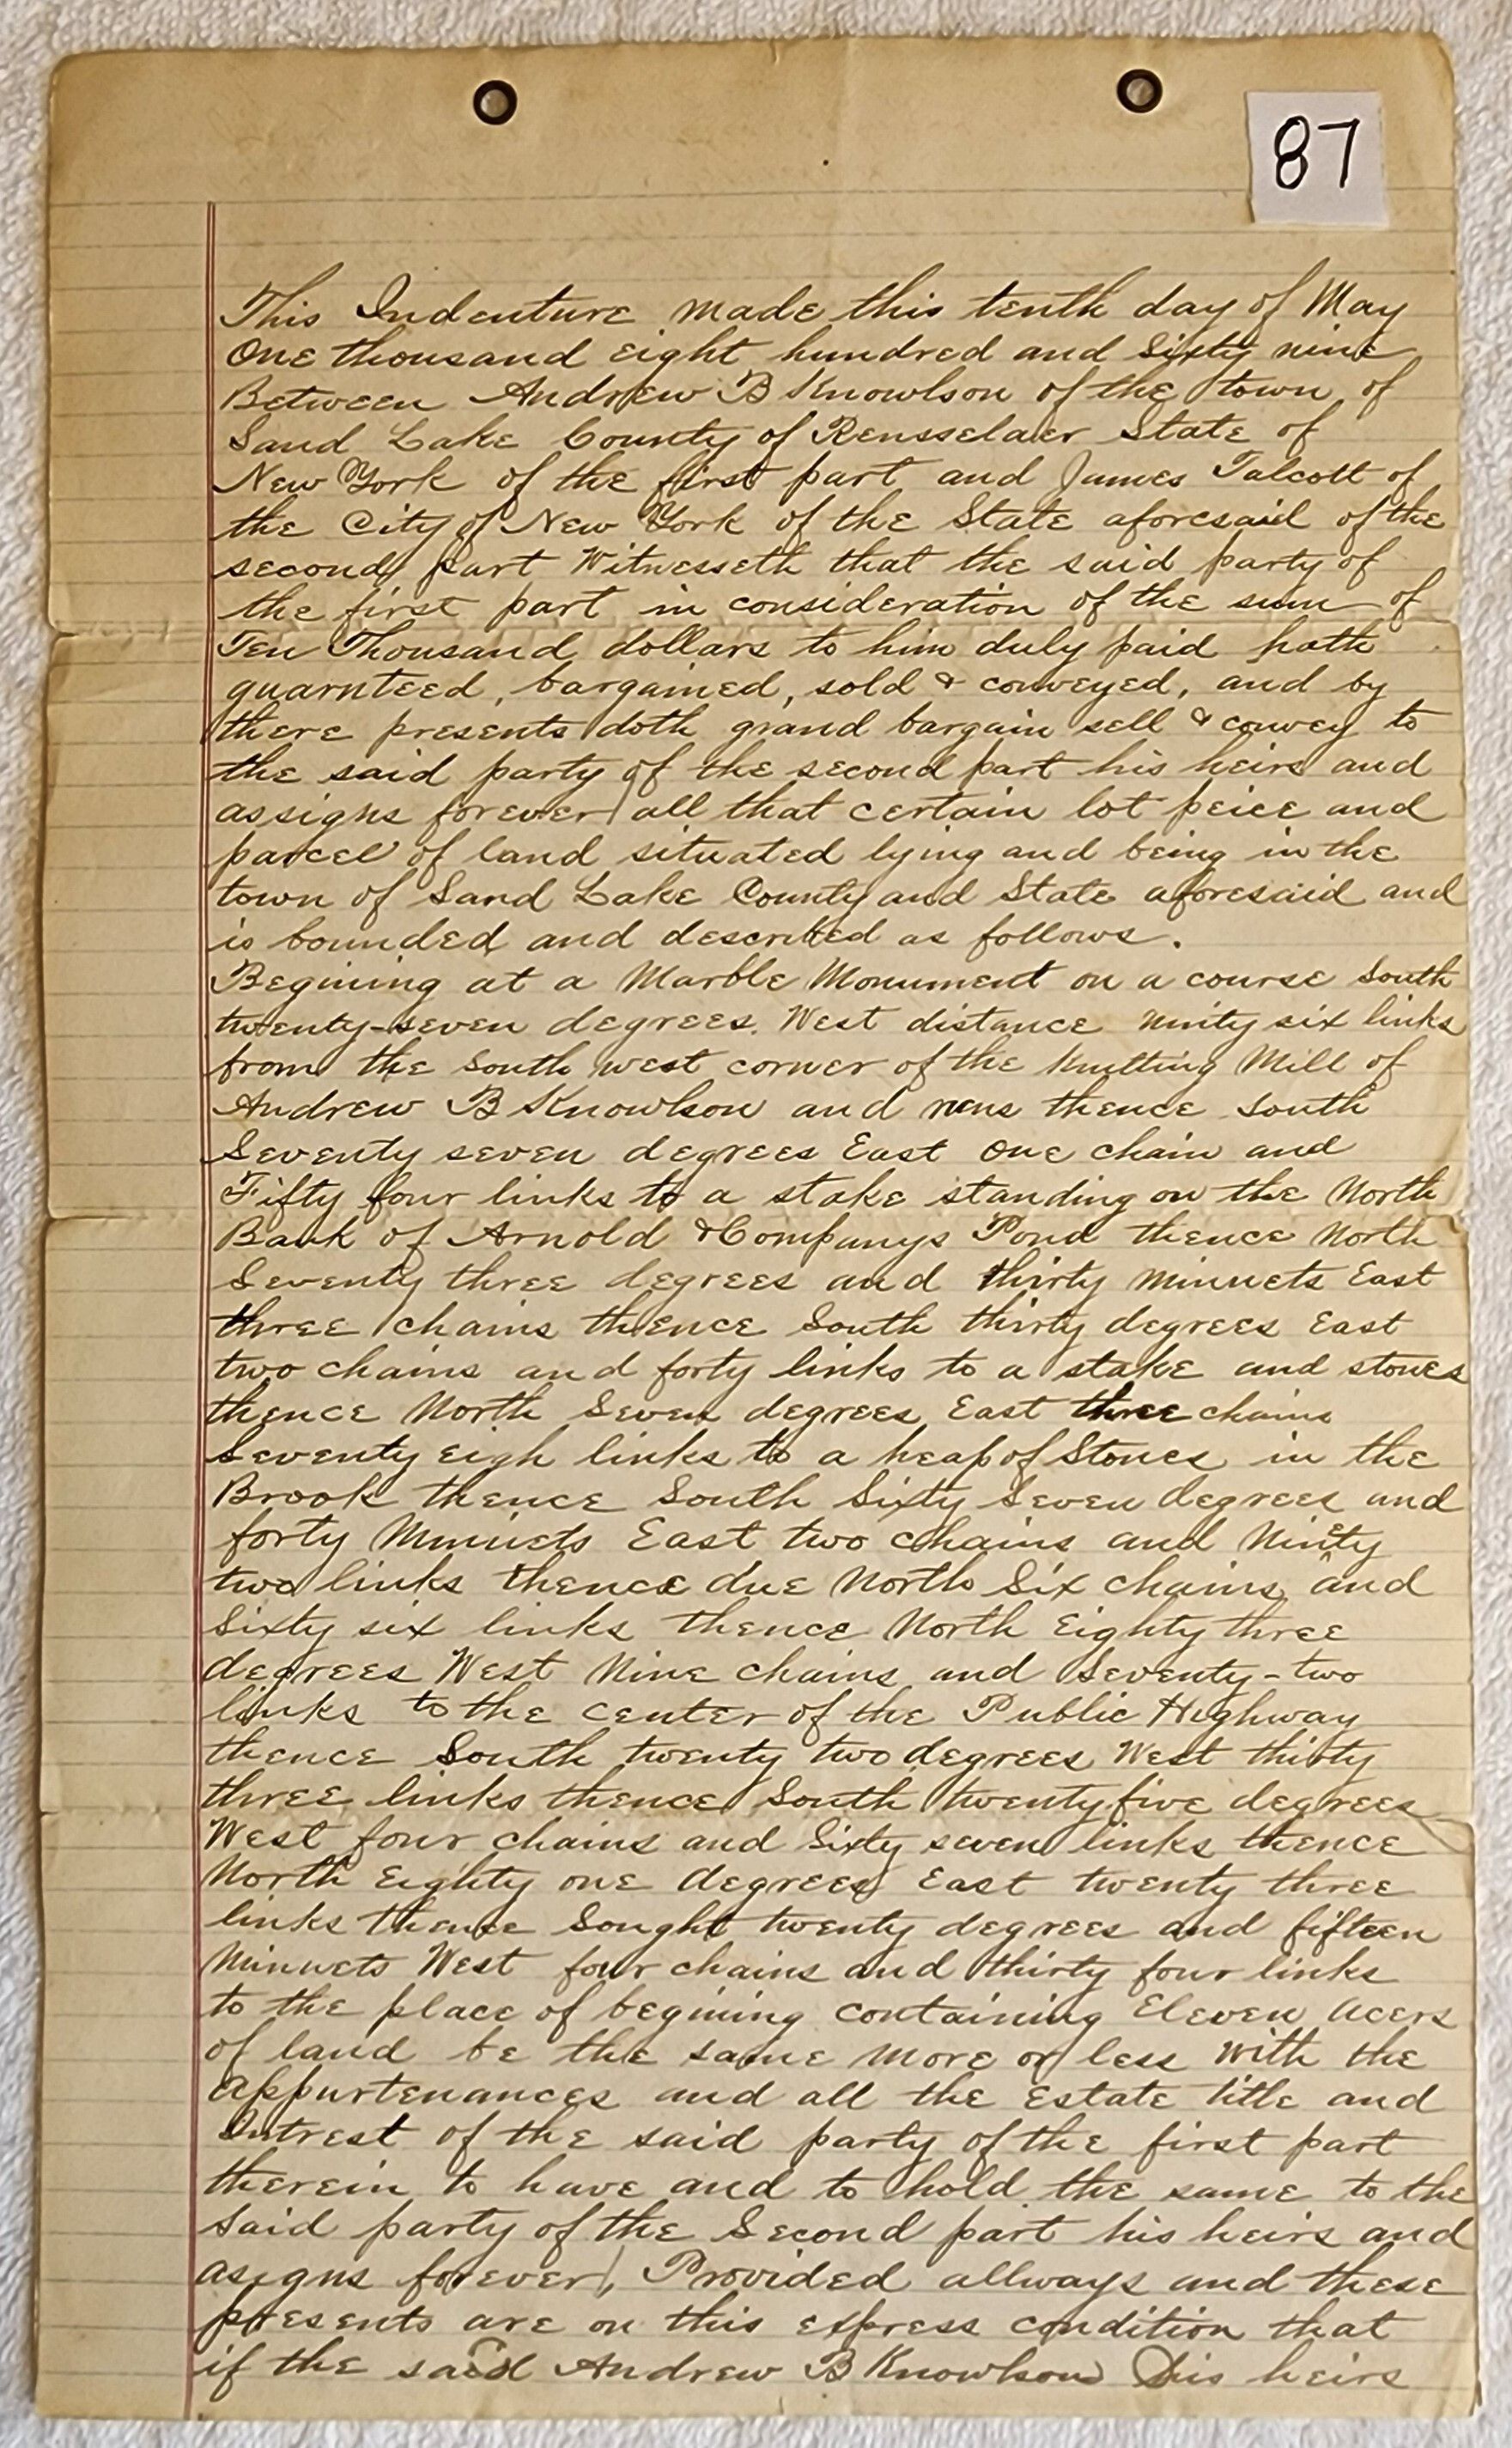 87
This Indenture made this tenth day of May
One thousand eight hundred and Sixty nine
Between Andrew B Knowlson of the town of
Sand Lake County of Rensselaer State of
New York of the first part and James Talcott of
the City of New York of the State aforesaid of the
second part Witnesseth that the said party of
the first part in consideration of the sum of
Ten Thousand dollars to him duly paid hath
guarnteed, bargained, sold & conveyed, and by
there presents doth grand bargain sell & convey to
the said party of the second part his heirs and
assigns forever all that certain lot peice and
parcel of land situated lying and being in the
town of Sand Lake County and State aforesaid and
is bounded and described as follows.
Begining at a Marble Monument on a course South
twenty-seven degrees West distance ninity six links
from the South west corner of the Knitting Mill of
Andrew B Knowlson and runs thence South
Seventy seven degrees East One chain and
Fifty four links to a stake standing on the North
Bank of Arnold & Companys Pond thence North
Seventy three degrees and thirty Minuets East
three chains thence South thirty degrees East
two chains and forty links to a stake and stones
thence North Seven degrees East three chains
Seventy eigh links to a heap of Stones in the
Brook thence South Sixty Seven degrees and
forty Minuets East two chains and Ninety
two links thence due North Six chains and
Sixty six links thence North Eighty three
degrees West Nine chains and Seventy-two
links to the center of the Public Highway
thence South twenty two degrees West thirty
three links thence South twenty five degrees
West four chains and Sixty seven links thence
North Eighty one degrees East twenty three
links thence Sought twenty degrees and fifteen
Minuets West four chains and thirty four links
to the place of begining containing Eleven Acers
of land be the same More or less With the
Appurtenances and all the Estate title and
Intrest of the said party of the first part
therein to have and to hold the same to the
Said party of the Second part his heirs and
asigns forever, Provided allways and these
presents are on this express condition that
if the said Andrew B Knowlson his heirs